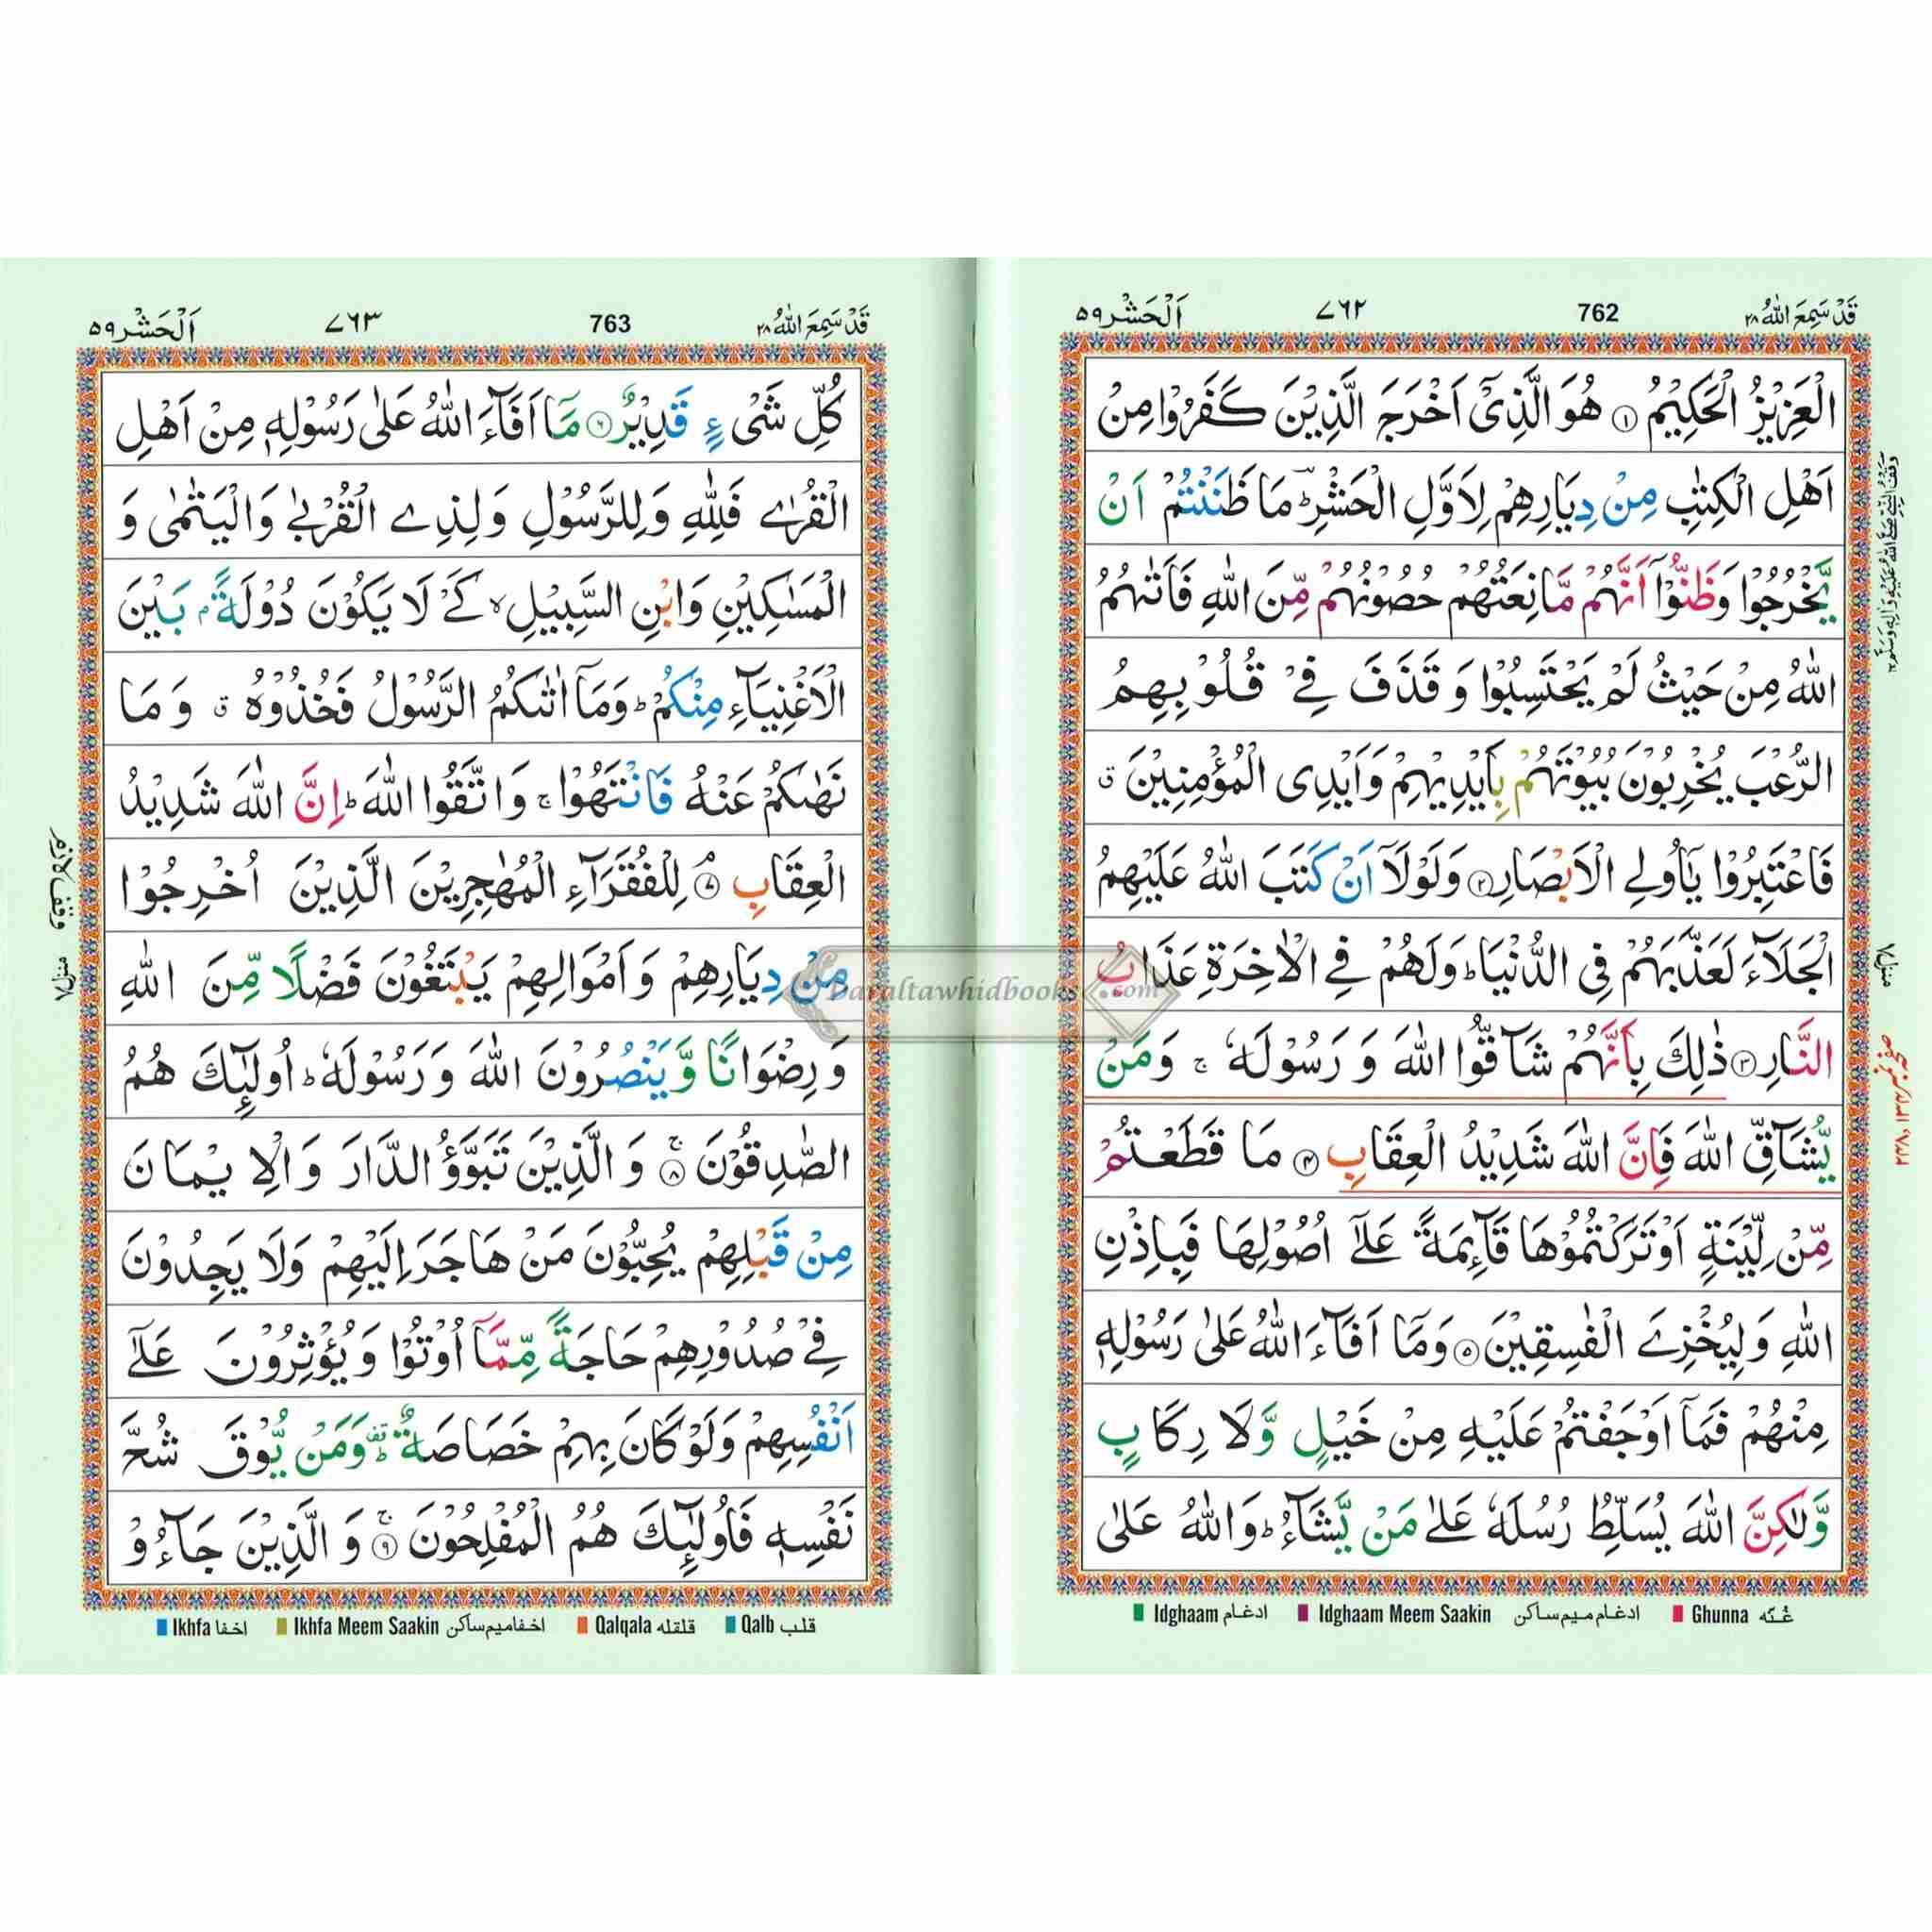 قَدْ سَمِعَ اللّٰهُ ٢٨
762
٧٦٢
اَلْحَشْر ٥٩
الْعَزِيْزُ الْحَكِيْمُ ۝١ هُوَ الَّذِيْٓ اَخْرَجَ الَّذِيْنَ كَفَرُوْا مِنْ
اَهْلِ الْكِتٰبِ مِنْ دِيَارِهِمْ لِاَوَّلِ الْحَشْرِ ؕ مَا ظَنَنْتُمْ اَنْ
يَّخْرُجُوْا وَظَنُّوْٓا اَنَّهُمْ مَّانِعَتُهُمْ حُصُوْنُهُمْ مِّنَ اللّٰهِ فَاَتٰىهُمُ
اللّٰهُ مِنْ حَيْثُ لَمْ يَحْتَسِبُوْا وَ قَذَفَ فِيْ قُلُوْبِهِمُ
الرُّعْبَ يُخْرِبُوْنَ بُيُوْتَهُمْ بِاَيْدِيْهِمْ وَاَيْدِى الْمُؤْمِنِيْنَ ق
فَاعْتَبِرُوْا يٰٓاُولِي الْاَبْصَارِ ۝٢ وَلَوْلَآ اَنْ كَتَبَ اللّٰهُ عَلَيْهِمُ
الْجَلَآءَ لَعَذَّبَهُمْ فِي الدُّنْيَا ؕ وَلَهُمْ فِي الْاٰخِرَةِ عَذَابُ
النَّارِ ۝٣ ذٰلِكَ بِاَنَّهُمْ شَآقُّوا اللّٰهَ وَ رَسُوْلَهٗ ۚ وَمَنْ
يُّشَآقِّ اللّٰهَ فَاِنَّ اللّٰهَ شَدِيْدُ الْعِقَابِ ۝٤ مَا قَطَعْتُمْ
مِّنْ لِّيْنَةٍ اَوْ تَرَكْتُمُوْهَا قَآئِمَةً عَلٰٓى اُصُوْلِهَا فَبِاِذْنِ
اللّٰهِ وَلِيُخْزِيَ الْفٰسِقِيْنَ ۝٥ وَمَآ اَفَآءَ اللّٰهُ عَلٰى رَسُوْلِهٖ
مِنْهُمْ فَمَآ اَوْجَفْتُمْ عَلَيْهِ مِنْ خَيْلٍ وَّلَا رِكَابٍ
وَّلٰكِنَّ اللّٰهَ يُسَلِّطُ رُسُلَهٗ عَلٰى مَنْ يَّشَآءُ ؕ وَاللّٰهُ عَلٰى
Idghaam ادغام Idghaam Meem Saakin ادغام ميم ساكن Ghunna غُنّه
منزل ٧
قَدْ سَمِعَ اللّٰهُ ٢٨
763
٧٦٣
اَلْحَشْر ٥٩
كُلِّ شَىْءٍ قَدِيْرٌ ۝٦ مَآ اَفَآءَ اللّٰهُ عَلٰى رَسُوْلِهٖ مِنْ اَهْلِ
الْقُرٰى فَلِلّٰهِ وَلِلرَّسُوْلِ وَلِذِى الْقُرْبٰى وَالْيَتٰمٰى وَ
الْمَسٰكِيْنِ وَابْنِ السَّبِيْلِ ۙ كَيْ لَا يَكُوْنَ دُوْلَةًۢ بَيْنَ
الْاَغْنِيَآءِ مِنْكُمْ ؕ وَمَآ اٰتٰىكُمُ الرَّسُوْلُ فَخُذُوْهُ ق وَ مَا
نَهٰىكُمْ عَنْهُ فَانْتَهُوْا ۚ وَ اتَّقُوا اللّٰهَ ؕ اِنَّ اللّٰهَ شَدِيْدُ
الْعِقَابِ ۝٧ۘ لِلْفُقَرَآءِ الْمُهٰجِرِيْنَ الَّذِيْنَ اُخْرِجُوْا
مِنْ دِيَارِهِمْ وَ اَمْوَالِهِمْ يَبْتَغُوْنَ فَضْلًا مِّنَ اللّٰهِ
وَ رِضْوَانًا وَّيَنْصُرُوْنَ اللّٰهَ وَ رَسُوْلَهٗ ؕ اُولٰٓئِكَ هُمُ
الصّٰدِقُوْنَ ۝٨ۚ وَ الَّذِيْنَ تَبَوَّؤُ الدَّارَ وَ الْاِيْمَانَ
مِنْ قَبْلِهِمْ يُحِبُّوْنَ مَنْ هَاجَرَ اِلَيْهِمْ وَلَا يَجِدُوْنَ
فِيْ صُدُوْرِهِمْ حَاجَةً مِّمَّآ اُوْتُوْا وَ يُؤْثِرُوْنَ عَلٰٓى
اَنْفُسِهِمْ وَلَوْ كَانَ بِهِمْ خَصَاصَةٌ ؕ وَمَنْ يُّوْقَ شُحَّ
نَفْسِهٖ فَاُولٰٓئِكَ هُمُ الْمُفْلِحُوْنَ ۝٩ۚ وَ الَّذِيْنَ جَآءُوْ
Ikhfa اخفا Ikhfa Meem Saakin اخفا ميم ساكن Qalqala قلقله Qalb قلب
وقف لازم
Daraltawhidbooks.com